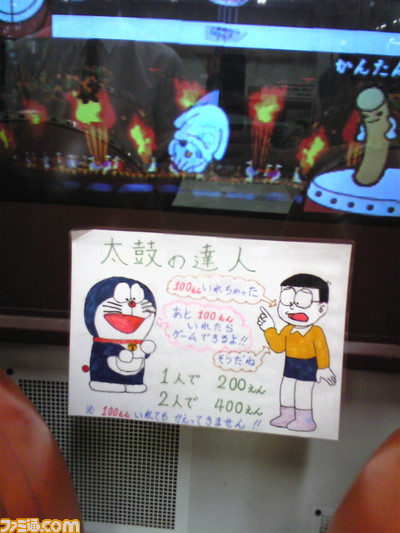 かんたん
太鼓の達人
100えんいれちゃった
あと100えん
いれたら
ゲームできるよ!!
そうだね
1人で 200えん
2人で 400えん
※100えんいれてもかえってきません!!
ファミ通.com